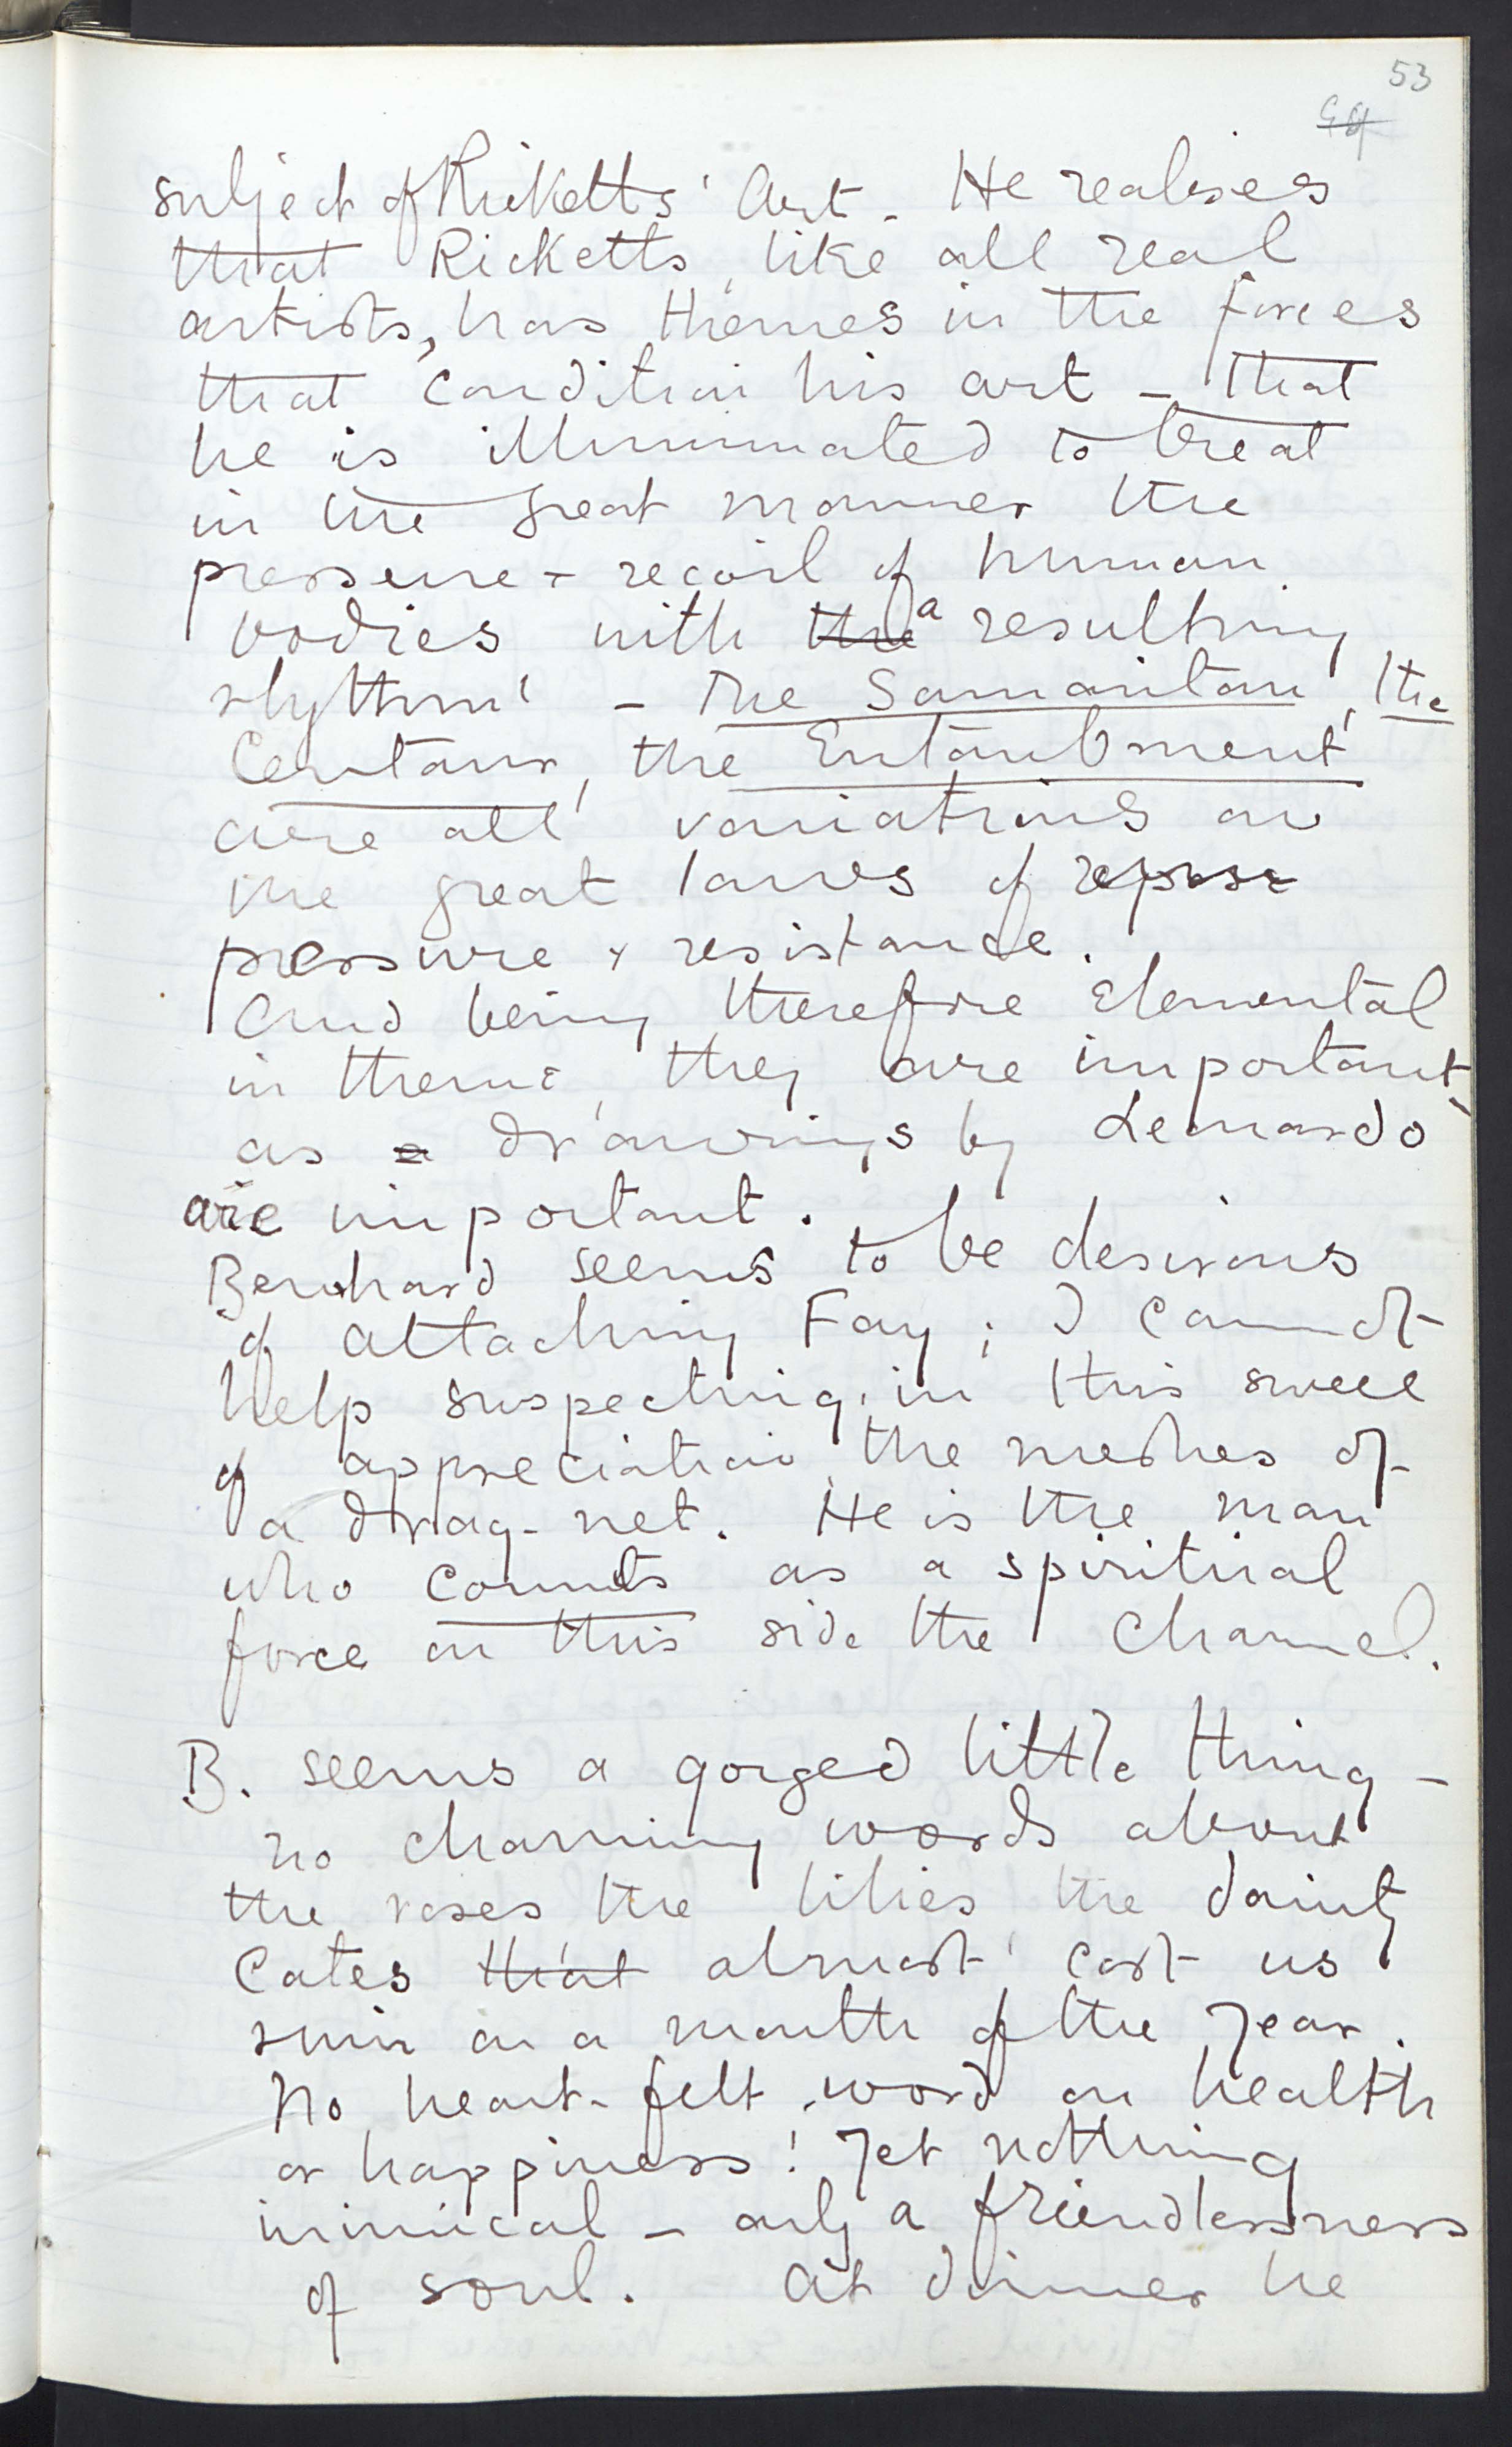 53
subject of Ricketts' Art. He realises
that Ricketts, like all real
artists, has themes in the forces
that condition his art – that
he is illuminated to treat
in the great manner the
pressure + recoil of human
bodies with the a resulting
rhythm' – The Samaritan, the
Centaur, the Entombment
are all variations on
the great laws of repose
pressure + resistance.
And being therefore elemental
in theme, they are important,
as a drawings by Leonardo
are important.
Bernhard seems to be desirous
of attaching Fay; I cannot
help suspecting, in this swell
of appreciation, the meshes of
a drag-net. He is the man
who counts as a spiritual
force on this side the Channel.
B. seems a gorged little thing –
no charming words about
the roses the lilies the dainty
cates that almost cost us
ruin in a month of the year.
No heart-felt word on health
or happiness! Yet nothing
inimical – only a friendlessness
of soul. At dinner he